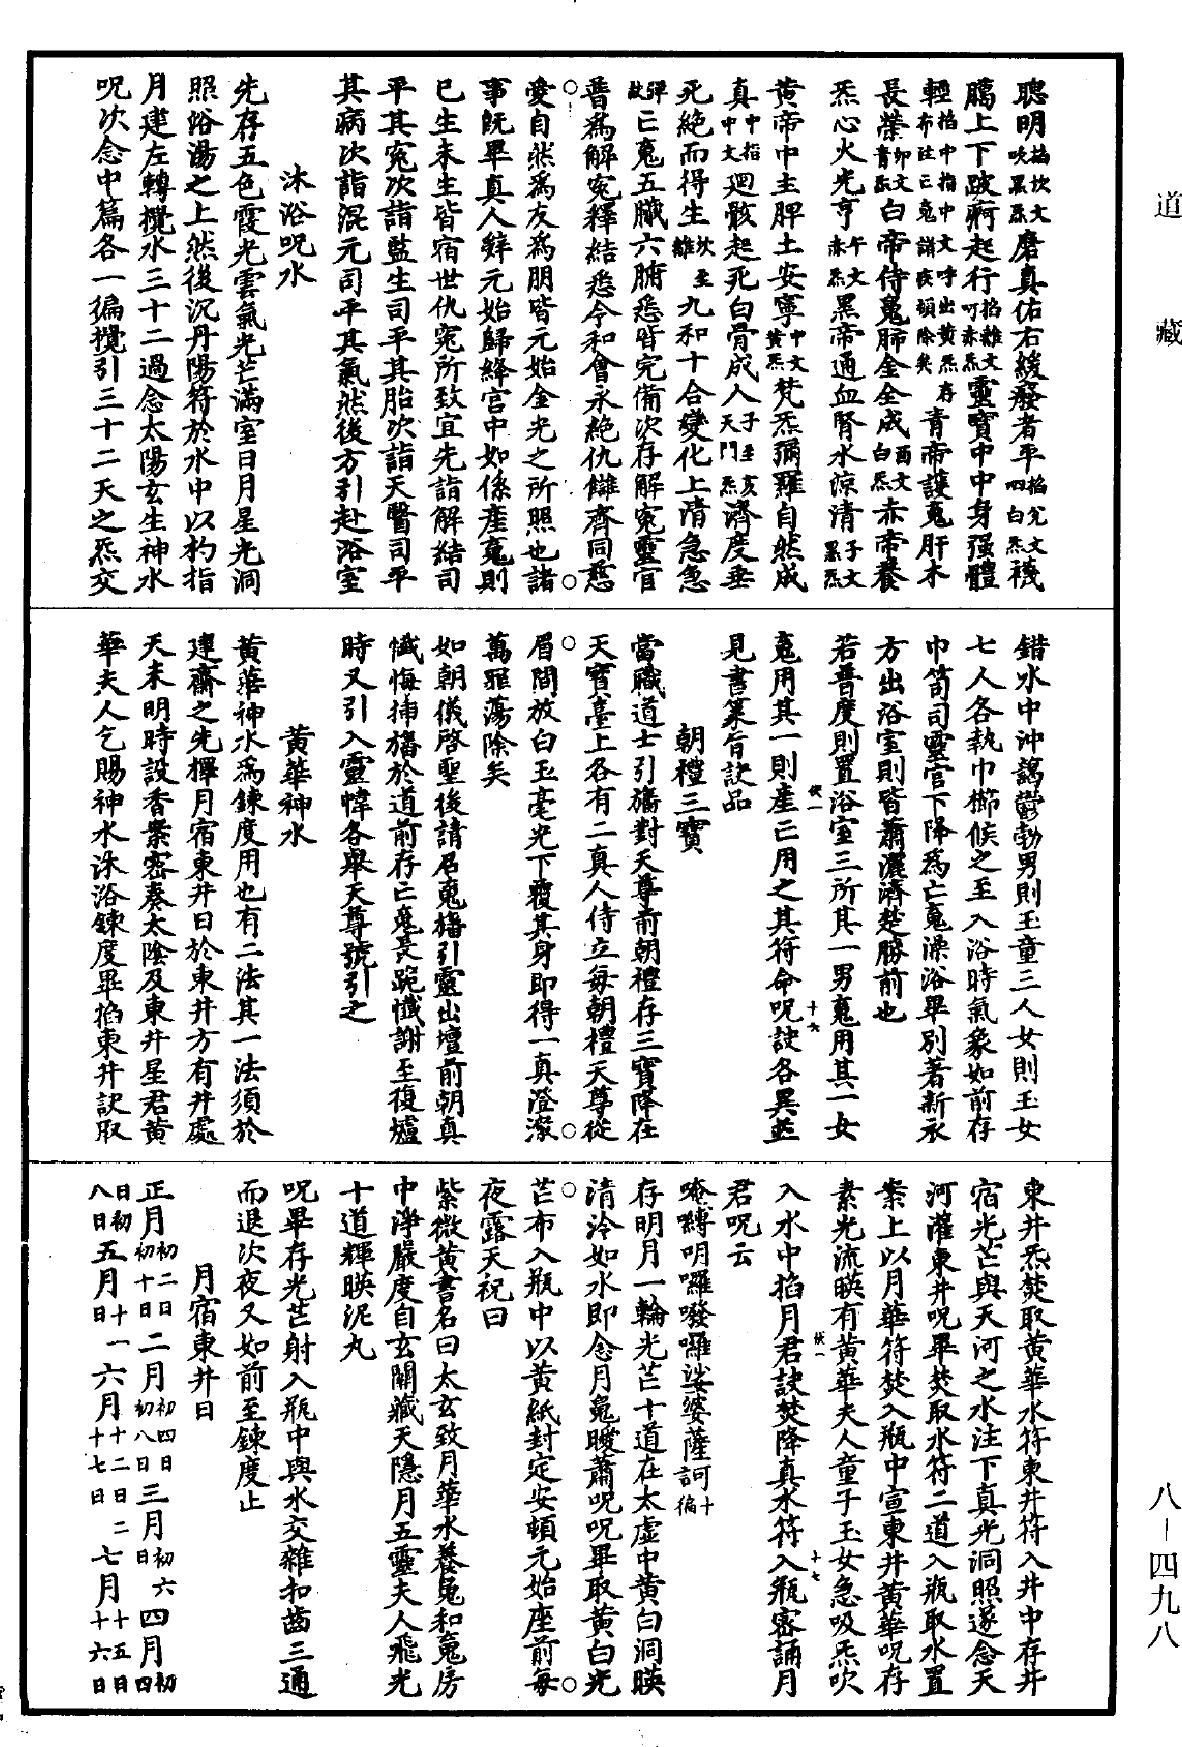 道藏
八－四九八
聰明掐坎文吹黑炁磨真佑右緩廢者平掐兌文呬白炁襪
騰上下跛痾起行掐離文呵赤炁靈寶中中身强體
輕掐中指中文呼出黃炁存布註亡䰟諸疾頓除矣青帝護䰟肝木
長榮卯文青炁白帝侍魄肺金全成酉文白炁赤帝養
炁心火光亨午文赤炁黑帝通血腎水凉清子文黑炁
黄帝中主脾土安寧中文黃炁梵炁彌羅自然成
真中指中文廻骸起死白骨成人子至亥天門炁濟度垂
死絶而得生坎至離九和十合變化上清急急
彈訣亡䰟五臟六腑悉皆完備次存解寃靈官
普爲解寃釋結悉令和會永絶仇讎齊同慈
愛自然爲友爲朋皆元始金光之所照也諸
事旣畢真人辭元始歸絳宫中如係產䰟則
已生未生皆宿世仇寃所致宜先詣解結司
平其寃次詣監生司平其胎次詣天醫司平
其病次詣混元司平其氣然後方引赴浴室
沐浴呪水
先存五色霞光雲氣光芒滿室日月星光洞
照浴湯之上然後沉丹陽符於水中以杓指
月建左轉攪水三十二過念太陽玄生神水
呪次念中篇各一徧攪引三十二天之炁交
錯水中沖靄鬱勃男則玉童三人女則玉女
七人各執巾櫛候之至入浴時氣象如前存
巾笥司靈官下降爲亡䰟澡浴畢别著新衣
方出浴室則皆蕭灑濟楚勝前也
若普度則置浴室三所其一男䰟用其一女
䰟用其一則產亡用之其符命呪訣各異並
見書篆旨訣品
朝禮三寳
當職道士引旛對天尊前朝禮存三寳降在
天寳臺上各有二真人侍立每朝禮天尊從
眉間放白玉毫光下覆其身即得一真澄湛
萬罪蕩除矣
如朝儀啓聖後請召䰟旛引靈出壇前朝真
懺悔揷旛於道前存亡䰟長跪懺謝至復爐
時又引入靈幃各舉天尊號引之
黄華神水
黄華神水爲鍊度用也有二法其一法須於
建齋之先擇月宿東井日於東井方有井處
天未明時設香案密奏太陰及東井星君黄
華夫人乞賜神水沐浴鍊度畢掐東井訣取
東井炁焚取黄華水符東井符入井中存井
宿光芒與天河之水注下真光洞照遂念天
河灌東井呪畢焚取水符二道入瓶取水置
案上以月華符焚入瓶中宣東井黄華呪存
素光流暎有黄華夫人童子玉女急吸炁吹
入水中掐月君訣焚降真水符入瓶密誦月
君呪云
唵縛呬囉嚩囉娑婆薩訶十徧
存明月一輪光芒十道在太虚中黄白洞暎
清泠如水即念月䰟曖蕭呪呪畢取黄白光
芒布入瓶中以黄紙封定安頓元始座前每
夜露天祝曰
紫微黄書名曰太玄致月華水養䰟和䰟房
中淨嚴度自玄關藏天隱月五靈夫人飛光
十道輝暎泥丸
呪畢存光芒射入瓶中與水交雜扣齒三通
而退次夜又如前至鍊度止
月宿東井日
正月初二日初十日二月初四日初八日三月初六日四月初四
日初八日五月十一日六月十二日二十七日七月十五日十六日